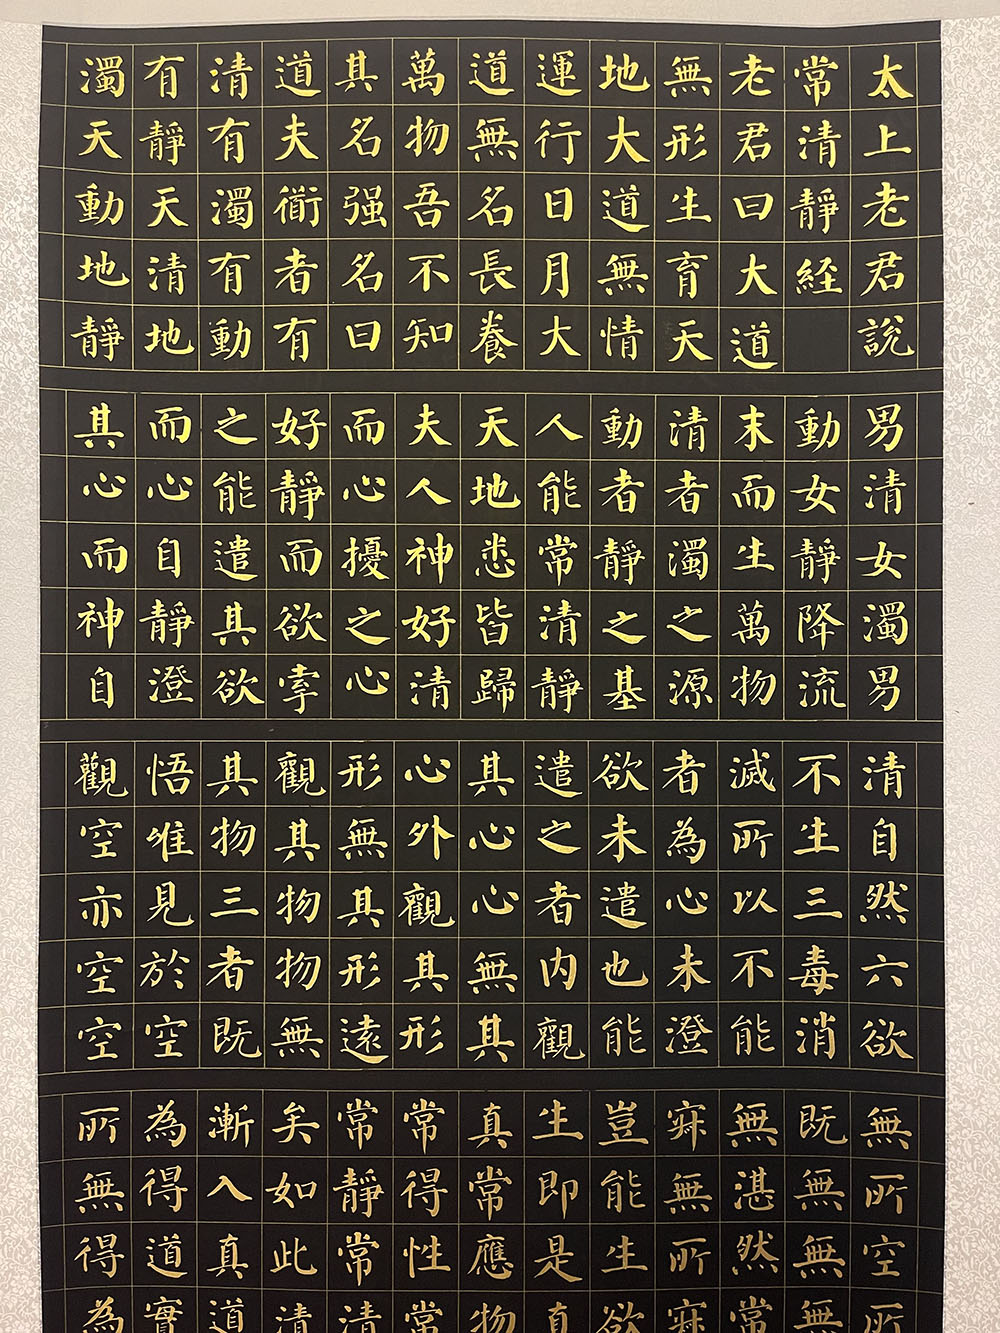 太上老君說
常清靜経
老君曰大道
無形生育天
地大道無情
運行日月大
道無名長養
萬物吾不知
其名强名曰
道夫衜者有
清有濁有動
有靜天清地
濁天動地靜
男清女濁男
動女靜降流
末而生萬物
清者濁之源
動者靜之基
人能常清靜
天地悉皆歸
夫人神好清
而心擾之心
好靜而欲牽
之能遣其欲
而心自靜澄
其心而神自
清自然六欲
不生三毒消
滅所以不能
者為心未澄
欲未遣也能
遣之者内觀
其心心無其
心外觀其形
形無其形遠
觀其物物無
其物三者既
悟唯見於空
觀空亦空空
無所空所
既無無無
無湛然常
寂無所寂
豈能生欲
生即是真
真常應物
常得性常
常靜常清
矣如此清
漸入真道
為得道實
所無得為